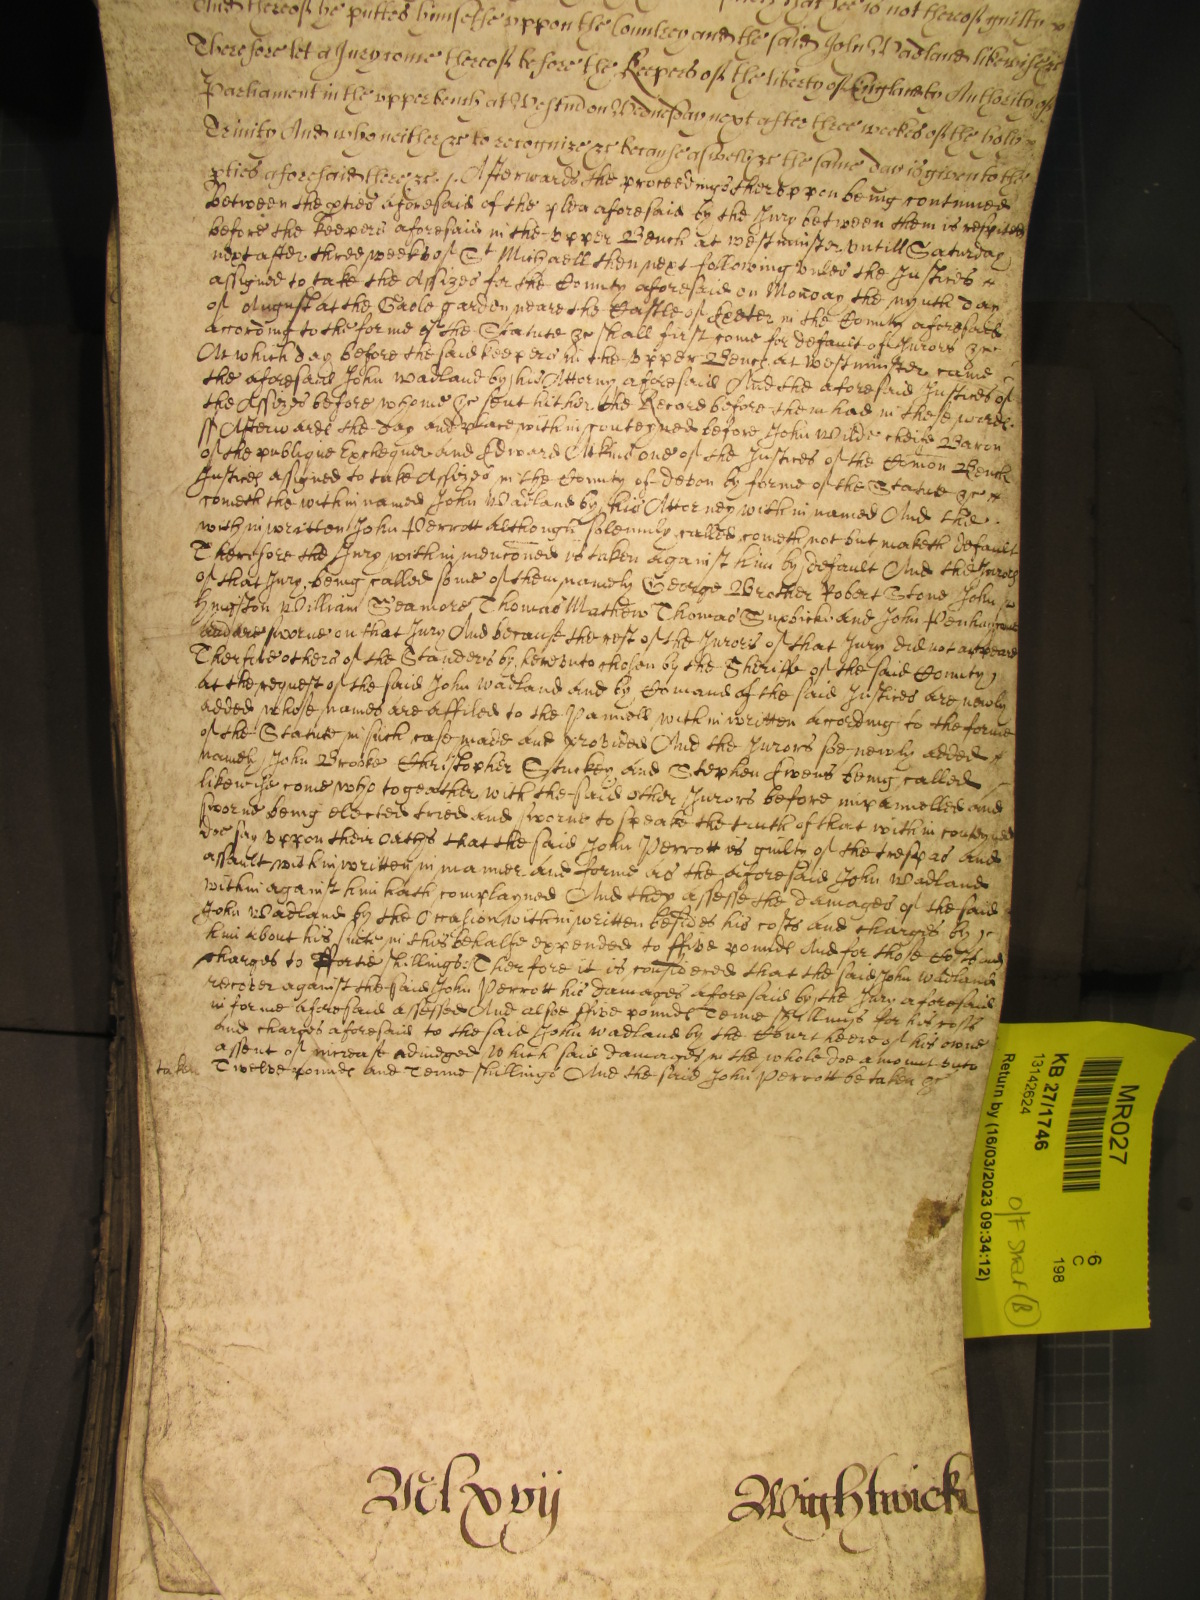 And thereof he puttes himselfe uppon the Countrey and the said John Wadland likewise &c
Therefore let a Jury come thereof before the Keepers of the liberty of England by Authority of
Parliament in the upper bench at Westm on Wednesday next after three weekes of the holy
Trinity And who neither &c to recognize &c because aswell &c the same day is given to the
pties aforesaid there &c. Afterwards the proceedings theruppon being continued
Between the pties aforesaid of the plea aforesaid by the Jury between them is respited
before the keepers aforesaid in the upper Bench at westminster untill Saturday
next after three weeks of St Michaell then next following unles the Justices
assigned to take the Assizes for the County aforesaid on Monday the nynth day
of August at the Gaole garden neare the Castle of Exeter in the County aforesaid
according to the forme of the Statute &c shall first come for default of Jurors &c
At which day before the said keepers in the upper Bench at westminster came
the aforesaid John Wadland by his Attorny aforesaid And the aforesaid Justices of
the Assizes before whome &c sent hither the Record before them had in these words
ss Afterwards the day and place within conteyned before John Wilde cheife Baron
of the publique Exchequer and Edward Atkins one of the Justices of the Comon Bench
Justices assigned to take Assizes in the County of devon by forme of the Statute &c
cometh the within named John Wadland by his Attorney within named And the
within written John Perrott although solemnly called cometh not but maketh default
Therefore the Jury within menconed is taken against him by default And the Jurors
of that Jury being called some of them namely George Brother Robert Stone John
William Seamore Thomas Mathew Thomas and John
and are sworne on that Jury And because the rest of the Jurors of that Jury did not appeare
Therfore others of the Standers by hereunto chosen by the Sheriffe of the said County
at the request of the said John Wadland and by Comand of the said Justices are newly
added whose names are affiled to the Pannell within written according to the forme
of the Statute in such case made and provided And the Jurors soe newly added
namely John Brooke Christopher Stuckey and Stephen Ewens being called
likewise come who togeather with the said other Jurors before impannelled and
sworne being elected tried and sworne to speake the truth of that within conteyned
doe say uppon their oathes that the said John Perrott is guilty of the trespas and
assault within written in manner and forme as the aforesaid John Wadland
within against him hath complayned And they assesse the damages of the said
John Wadland by the Occasion within written besides his costs and charges by
him about his suite in this behalfe expended to ffive pounds And for those costs and
charges to ffortie shillings Therfore it is considered that the said John Wadland
recover against the said John Perrott his damages aforesaid by the Jury aforesaid
in forme aforesaid assessed And alsoe ffive pounds Tenne shillings for his costs
and charges aforesaid to the said John Wadland by the Court heere of his owne
assent of increase adiudged Which said damages in the whole doe amount unto
taken Twelve pounds and Tenne shillings And the said John Perrott be taken &c
Mlxvij Wightwicke
MR027
6
C
198
KB 27/1746
13142624
O/F
Return by (16/03/2023 09:34:12)
B